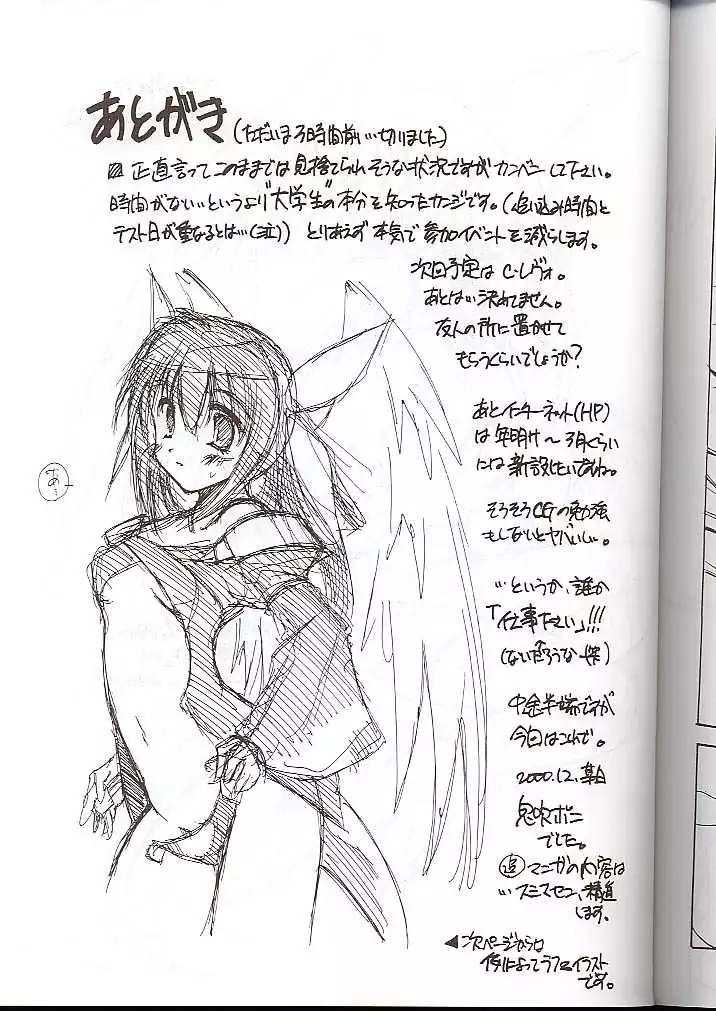 あとがき (ただいま3時間前…切りました)
正直言ってこのままでは見捨てられそうな状況ですがカンベンして下さい。
時間がない…というより"大学生"の本分を知ったカンジです。(追い込み時間と
テスト日が重なるとは…(泣)) とりあえず本気で参加イベントを減らします。
次回予定はC・レヴォ。
あとは…決めてません。
友人の所に置かせて
もらうくらいでしょうか?
あとインターネット(HP)
は年明け〜3月くらい
には新設したいですね。
そろそろCGの勉強
もしないとヤバいし。
…というか、誰か
「仕事下さい」!!!
(ないだろうな)
中途半端ですが
今回はこれで。
2000.12.某日
鬼吹ポニ
でした。
追 マンガの内容は
…スミマセン、精進
します。
あ…
◀次ページからは
例によってラフイラスト
です。